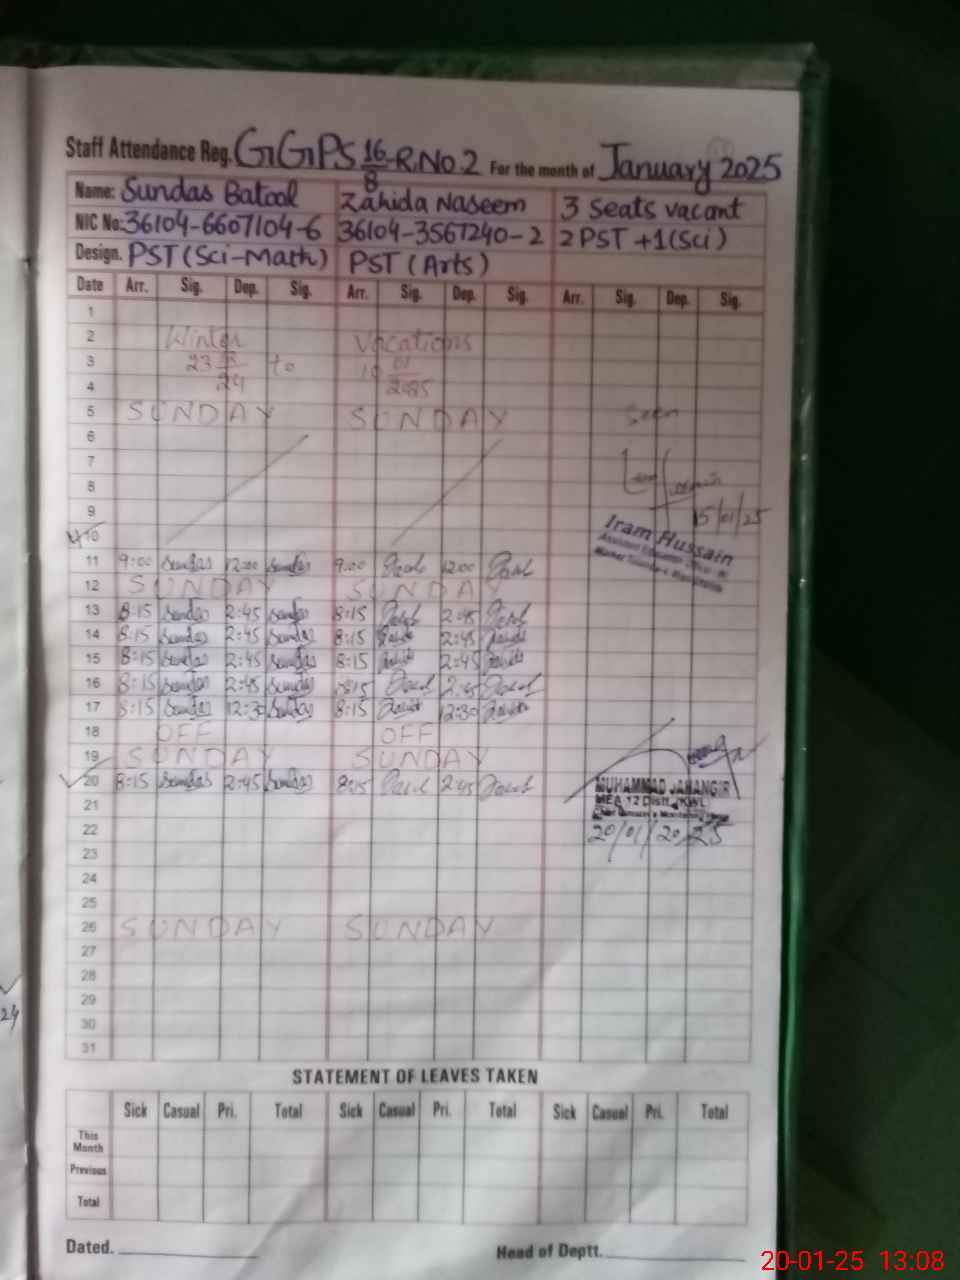 Staff Attendance Reg. GGPS 16/8-R.No.2 For the month of January 2025
Name: Sundas Batool Zahida Naseem 3 Seats vacant
NIC No: 36104-6607104-6 36104-3567240-2 2 PST +1(Sci)
Design. PST (Sci-Math) PST (Arts)
Date Arr. Sig. Dep. Sig. Arr. Sig. Dep. Sig. Arr. Sig. Dep. Sig.
1
2 Winter Vacations
3 23 12/24 to 10 01/2025
4
5 SUNDAY SUNDAY Seen
6
7
8
9 15/01/25
10 Iram Hussain
11 9:00 Sundas 12:00 Sundas 9:00 12:00
12 SUNDAY SUNDAY
13 8:15 Sundas 2:45 Sundas 8:15 2:45
14 8:15 Sundas 2:45 Sundas 8:15 2:45
15 8:15 Sundas 2:45 Sundas 8:15 2:45
16 8:15 Sundas 2:45 Sundas 8:15 2:45
17 8:15 Sundas 12:30 Sundas 8:15 12:30
18 OFF OFF
19 SUNDAY SUNDAY
20 8:15 Sundas 2:45 Sundas 8:15 2:45 MUHAMMAD JAHANGIR
21 MEA 12 Distt. (KWL)
22 20/01/2025
23
24
25
26 SUNDAY SUNDAY
27
28
29
30
31
STATEMENT OF LEAVES TAKEN
Sick Casual Pri. Total Sick Casual Pri. Total Sick Casual Pri. Total
This Month
Previous
Total
Dated. Head of Deptt.
24
20-01-25 13:08